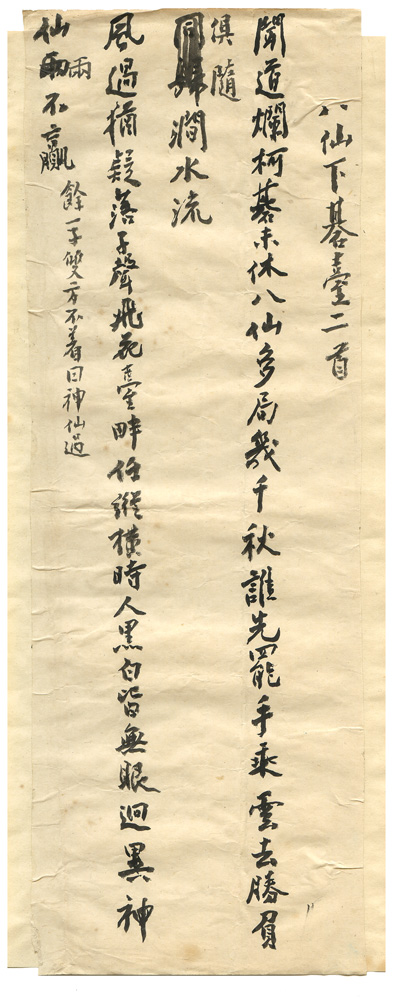 八仙下碁臺二首
聞道爛柯碁未休八仙多局幾千秋誰先罷手乘雲去勝負
俱隨
澗水流
風過猶疑落子聲飛花臺畔任縱橫時人黑白皆無眼迥異神
仙兩不贏
餘一子雙方不着曰神仙過